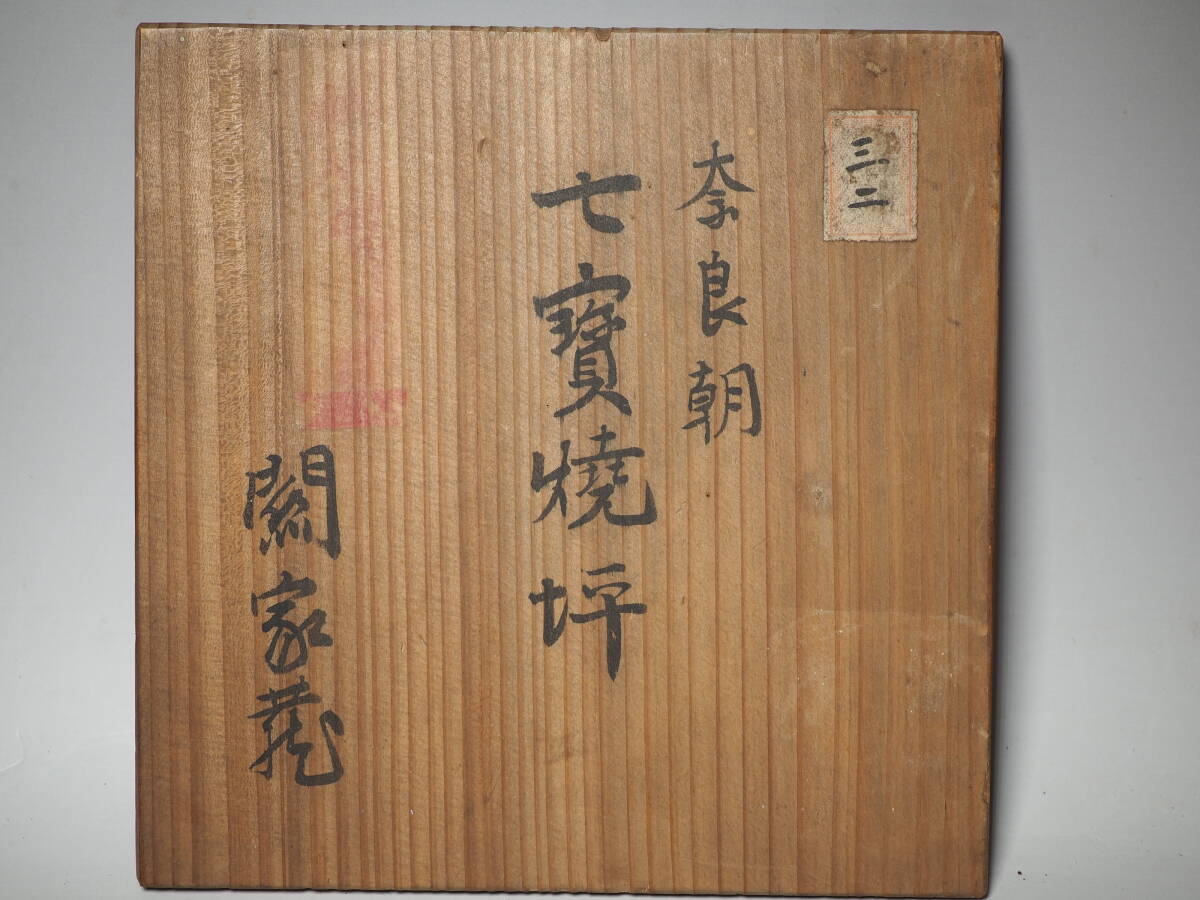 三二
奈良朝
七寶燒坪
關家藏